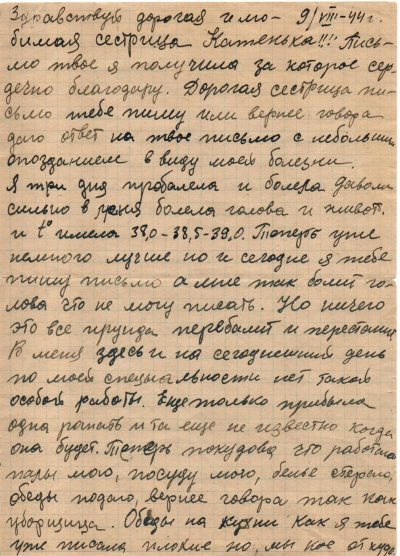 Здравствуй дорогая и лю- 9/VIII-44 г.
бимая сестрица Катенька!!! Пись-
мо твое я получила за которое сер-
дечно благодарю. Дорогая сестрица пи-
сьмо тебе пишу или вернее говора
даю ответ на твое письмо с небольшим
опозданием в виду моей болезни.
Я три дня проболела и болела доволи
сильно в меня болела голова и живот.
и t° имела 38,0-38,5-39,0. Теперь уже
немного лучше но и сегодня я тебе
пишу письмо а мне так болит го-
лова что не могу писать. Но ничего
это все ерунда переболит и перестанит
В меня здесь и на сегоднешний день
по моей специальности нет такой
особой работы. Еще только прибыла
одна и та еще не известно когда
она будет. Теперь покудова что работаю
палы мою, посуду мою, белье стераю,
обеды подаю, вернее говора так как
уборщица. Обеды на кухни как я тебе
уже писала плохие но, мы кое от куда